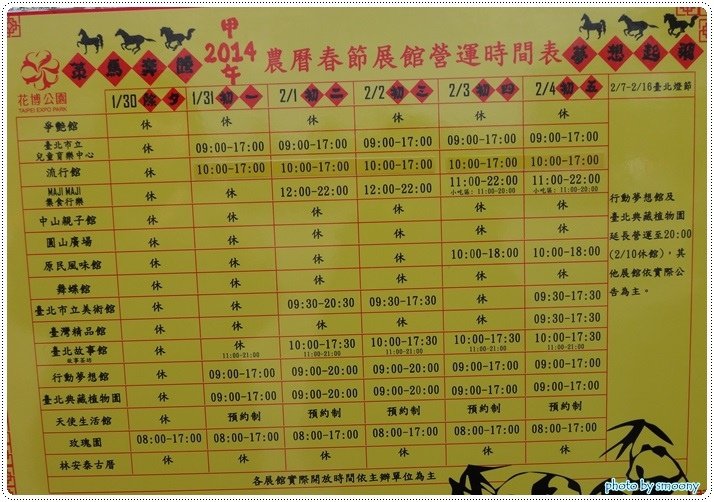 甲
2014
午
策馬奔騰
農曆春節展館營運時間表
夢想起飛
花博公園
TAIPEI EXPO PARK
1/30 除夕 1/31 初一 2/1 初二 2/2 初三 2/3 初四 2/4 初五 2/7-2/16臺北燈節
爭艷館 休 休 休 休 休 休
臺北市立兒童育樂中心 休 09:00-17:00 09:00-17:00 09:00-17:00 09:00-17:00 09:00-17:00
流行館 休 10:00-17:00 10:00-17:00 10:00-17:00 10:00-17:00 10:00-17:00
MAJI MAJI 集食行樂 休 休 12:00-22:00 12:00-22:00 11:00-22:00 小吃區: 11:00-20:00 11:00-22:00 小吃區: 11:00-20:00
中山親子館 休 休 休 休 休 休
圓山廣場 休 休 休 休 休 休
原民風味館 休 休 休 休 10:00-18:00 10:00-18:00
舞蝶館 休 休 休 休 休 休
臺北市立美術館 休 休 09:30-20:30 09:30-17:30 休 09:30-17:30
臺灣精品館 休 休 休 休 休 09:30-17:30
臺北故事館 休 休 10:00-17:30 10:00-17:30 10:00-17:30 10:00-17:30
故事茶坊 11:00-21:00 11:00-21:00 11:00-21:00 11:00-21:00 11:00-21:00
行動夢想館 休 09:00-17:00 09:00-20:00 09:00-20:00 09:00-17:00 09:00-17:00
臺北典藏植物園 休 09:00-17:00 09:00-20:00 09:00-20:00 09:00-17:00 09:00-17:00
天使生活館 休 預約制 預約制 預約制 預約制 預約制
玫瑰園 08:00-17:00 08:00-17:00 08:00-17:00 08:00-17:00 08:00-17:00 08:00-17:00
林安泰古厝 休 休 休 休 休 休
行動夢想館及
臺北典藏植物園
延長營運至20:00
(2/10休館)，其
他展館依實際公
告為主。
各展館實際開放時間依主辦單位為主
photo by smoony